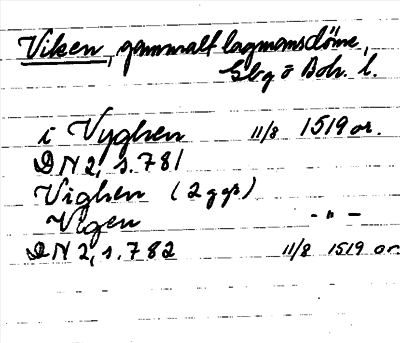 Viken, gammalt lagmansdöme,
Gbg o Boh. l.
i Vyghen 11/8 1519 or.
DN 2, s. 781
Vighen (2 ggr)
Vigen -"-
DN 2, s. 782 11/8 1519 or.